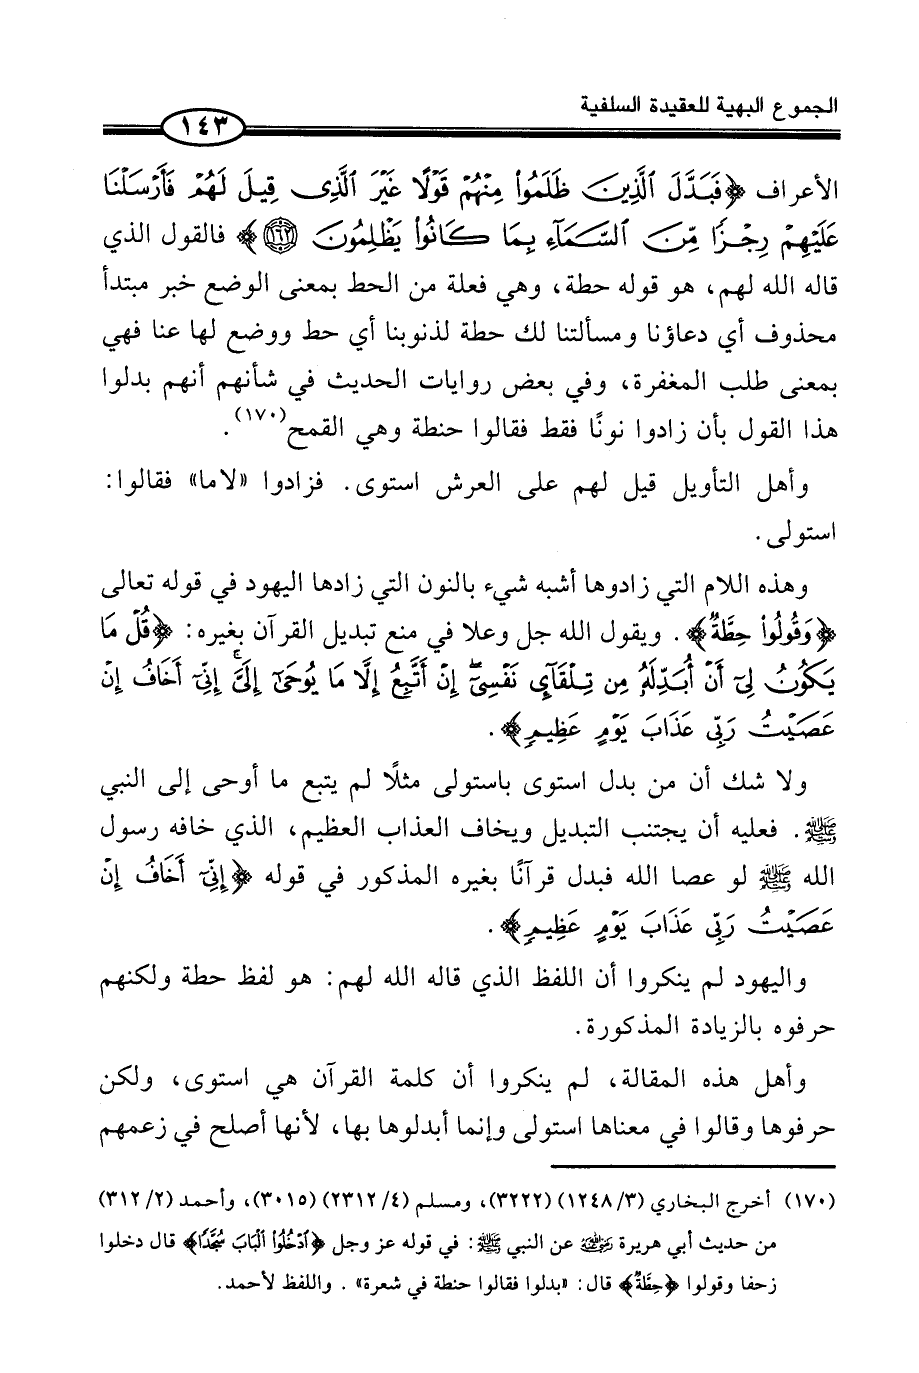 الجموع البهية للعقيدة السلفية
١٤٣
الأعراف ﴿فَبَدَّلَ ٱلَّذِينَ ظَلَمُوا۟ مِنْهُمْ قَوْلًا غَيْرَ ٱلَّذِى قِيلَ لَهُمْ فَأَرْسَلْنَا
عَلَيْهِمْ رِجْزًا مِّنَ ٱلسَّمَآءِ بِمَا كَانُوا۟ يَظْلِمُونَ ١٦٢﴾ فالقول الذي
قاله الله لهم، هو قوله حطة، وهي فعلة من الحط بمعنى الوضع خبر مبتدأ
محذوف أي دعاؤنا ومسألتنا لك حطة لذنوبنا أي حط ووضع لها عنا فهي
بمعنى طلب المغفرة، وفي بعض روايات الحديث في شأنهم أنهم بدلوا
هذا القول بأن زادوا نونًا فقط فقالوا حنطة وهي القمح(١٧٠).
وأهل التأويل قيل لهم على العرش استوى. فزادوا «لاما» فقالوا:
استولى.
وهذه اللام التي زادوها أشبه شيء بالنون التي زادها اليهود في قوله تعالى
﴿وَقُولُوا۟ حِطَّةٌ﴾. ويقول الله جل وعلا في منع تبديل القرآن بغيره: ﴿قُلْ مَا
يَكُونُ لِىٓ أَنْ أُبَدِّلَهُۥ مِن تِلْقَآئِ نَفْسِىٓ ۖ إِنْ أَتَّبِعُ إِلَّا مَا يُوحَىٰٓ إِلَىَّ ۖ إِنِّىٓ أَخَافُ إِنْ
عَصَيْتُ رَبِّى عَذَابَ يَوْمٍ عَظِيمٍ﴾.
ولا شك أن من بدل استوى باستولى مثلًا لم يتبع ما أوحى إلى النبي
ﷺ. فعليه أن يجتنب التبديل ويخاف العذاب العظيم، الذي خافه رسول
الله ﷺ لو عصا الله فبدل قرآنًا بغيره المذكور في قوله ﴿إِنِّىٓ أَخَافُ إِنْ
عَصَيْتُ رَبِّى عَذَابَ يَوْمٍ عَظِيمٍ﴾.
واليهود لم ينكروا أن اللفظ الذي قاله الله لهم: هو لفظ حطة ولكنهم
حرفوه بالزيادة المذكورة.
وأهل هذه المقالة، لم ينكروا أن كلمة القرآن هي استوى، ولكن
حرفوها وقالوا في معناها استولى وإنما أبدلوها بها، لأنها أصلح في زعمهم
(١٧٠) أخرج البخاري (٣/ ١٢٤٨) (٣٢٢٢)، ومسلم (٤/ ٢٣١٢) (٣٠١٥)، وأحمد (٢/ ٣١٢)
من حديث أبي هريرة رضي الله عنه عن النبي ﷺ: في قوله عز وجل ﴿ٱدْخُلُوا۟ ٱلْبَابَ سُجَّدًا﴾ قال دخلوا
زحفا وقولوا ﴿حِطَّةٌ﴾ قال: «بدلوا فقالوا حنطة في شعرة». واللفظ لأحمد.